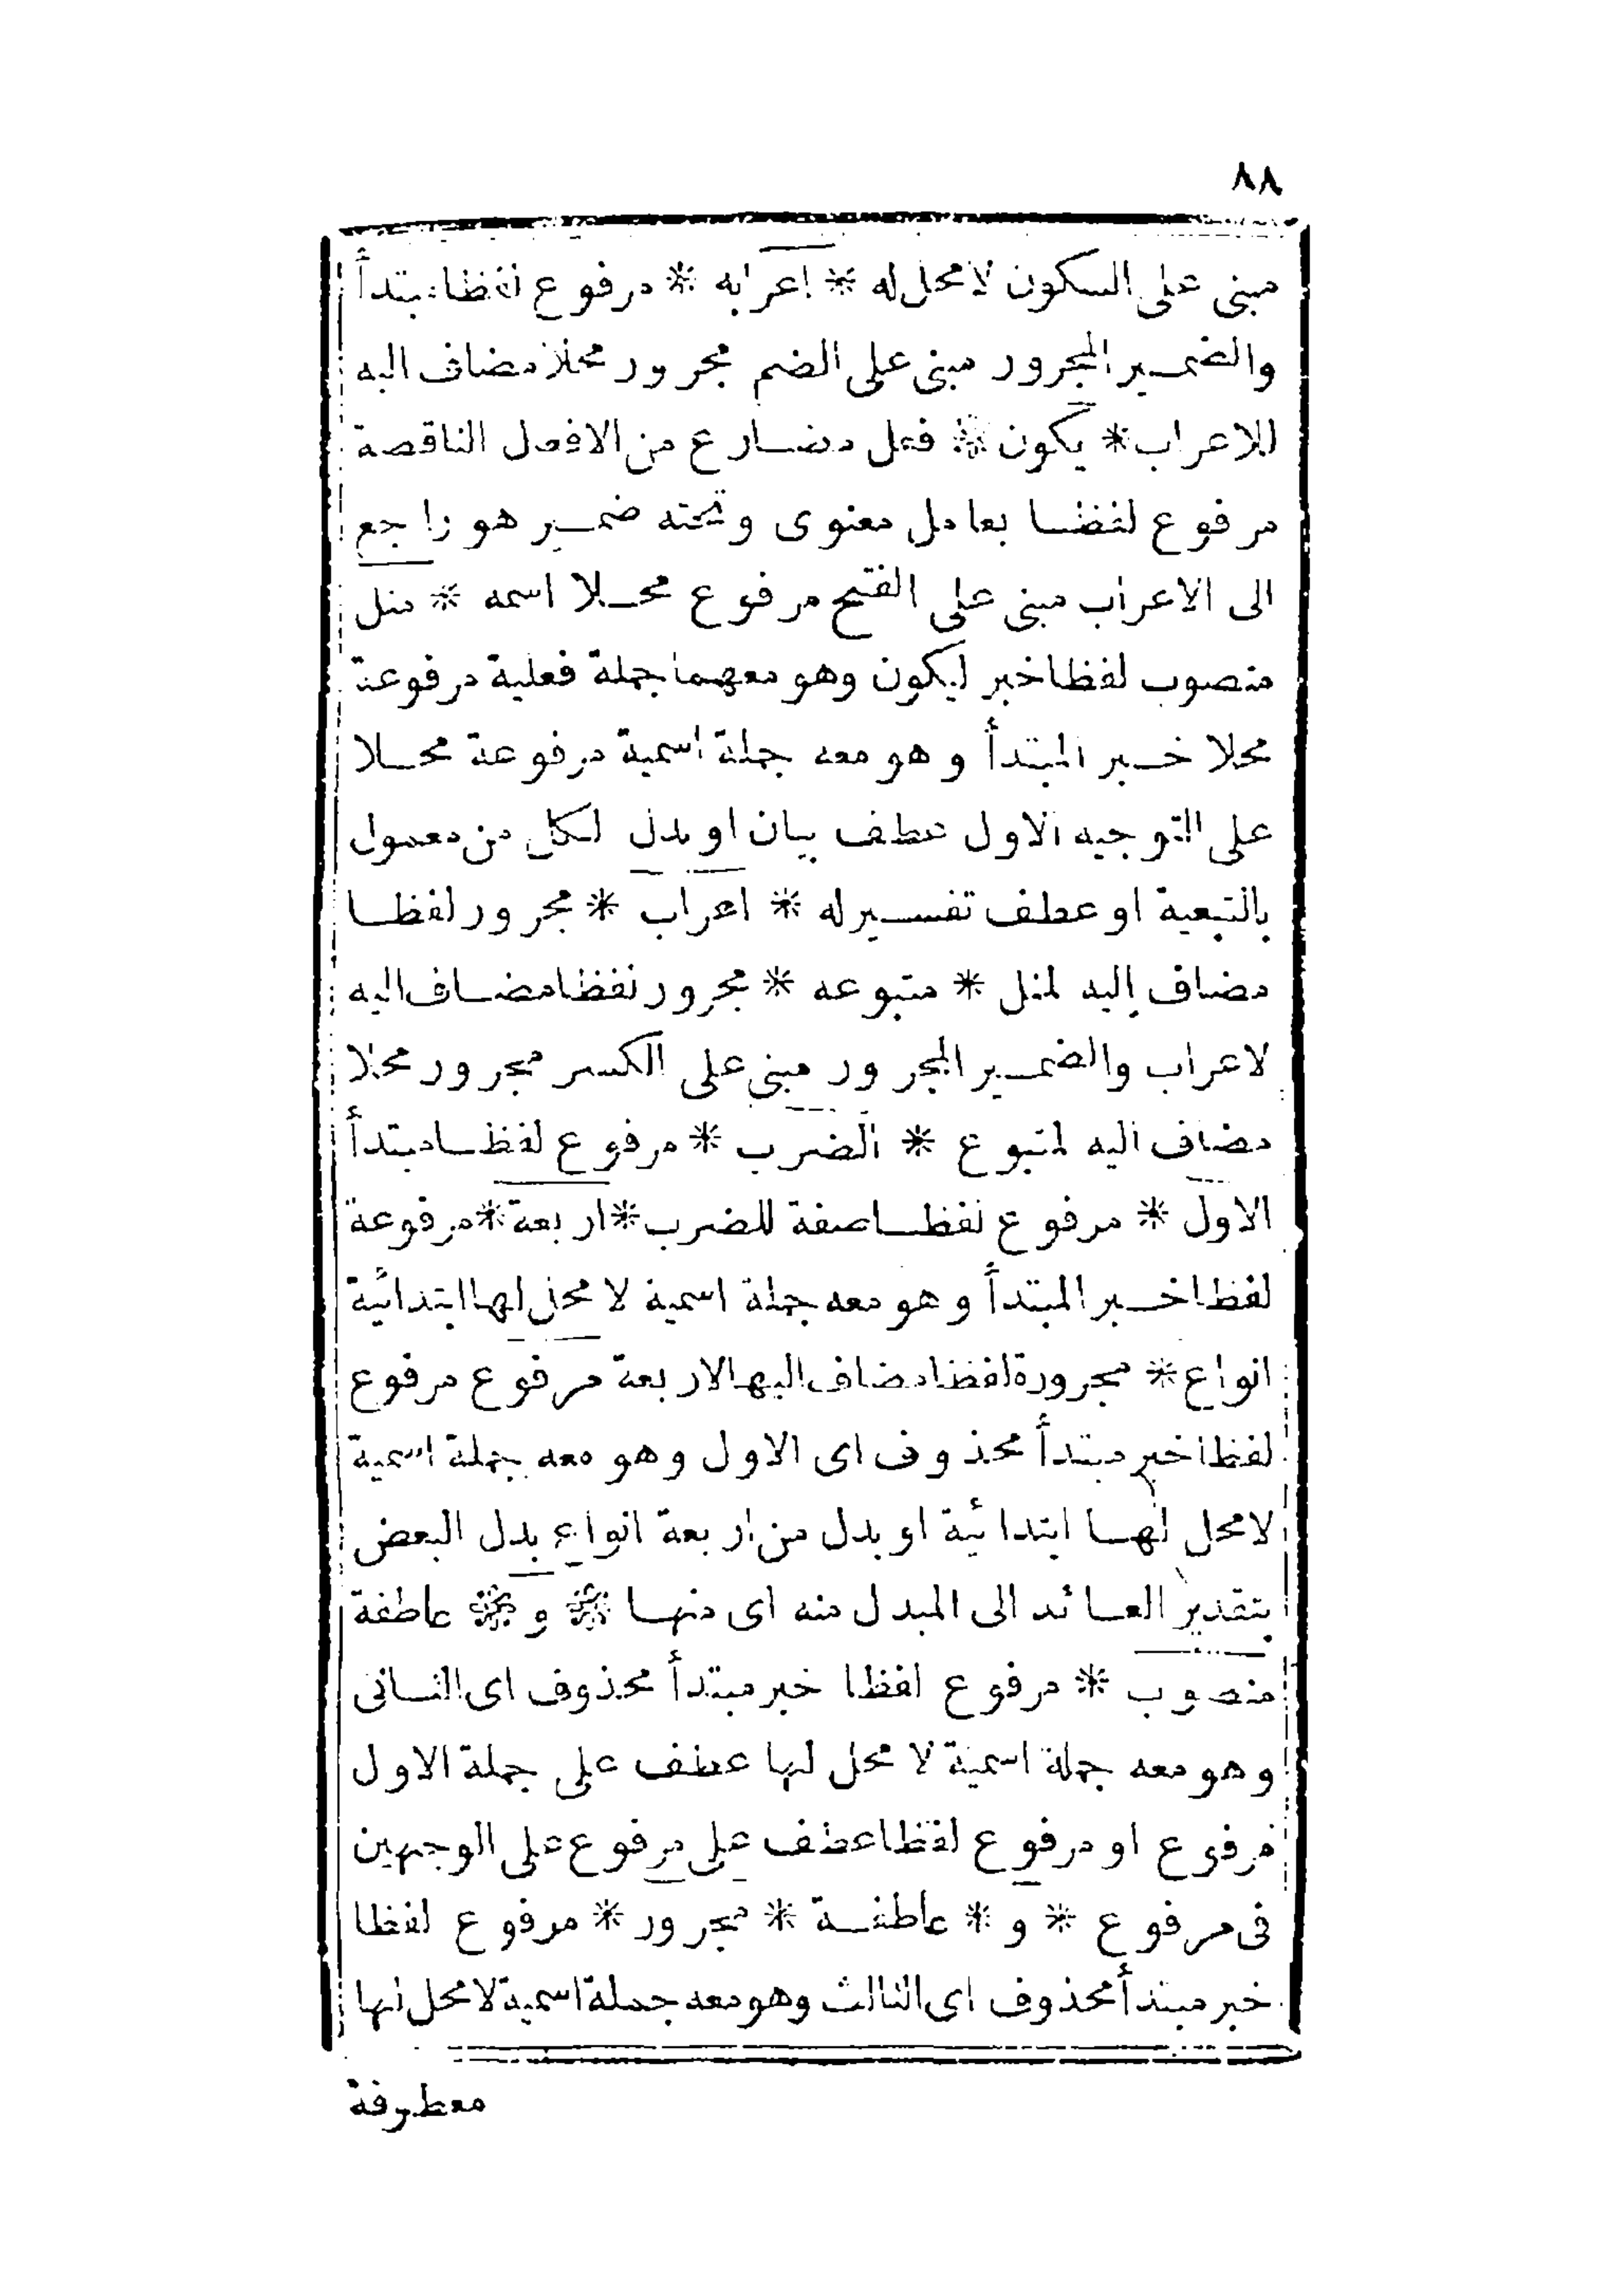 ٨٨
مبنى على السكون لا محل له * اعرابه * مرفوع لفظا مبتدأ
والضمير المجرور مبنى على الضم مجرور محلا مضاف اليه
للاعراب * يكون * فعل مضارع من الافعال الناقصة
مرفوع لفظا بعامل معنوى وتحته ضمير هو راجع
الى الاعراب مبنى على الفتح مرفوع محلا اسمه * مثل
منصوب لفظا خبر ليكون وهو معهما جملة فعلية مرفوعة
محلا خبر المبتدأ وهو معه جملة اسمية مرفوعة محلا
على التوجيه الاول عطف بيان او بدل لكل من معمول
بالتبعية او عطف تفسير له * اعراب * مجرور لفظا
مضاف اليه لمثل * متبوعه * مجرور لفظا مضاف اليه
لاعراب والضمير المجرور مبنى على الكسر مجرور محلا
مضاف اليه لمتبوع * الضرب * مرفوع لفظا مبتدأ
الاول * مرفوع لفظا صفة للضرب * اربعة * مرفوعة
لفظا خبر المبتدأ وهو معه جملة اسمية لا محل لها ابتدائية
انواع * مجرورة لفظا مضاف اليها لاربعة مرفوع مرفوع
لفظا خبر مبتدأ محذوف اى الاول وهو معه جملة اسمية
لا محل لها ابتدائية او بدل من اربعة انواع بدل البعض
بتقدير العائد الى المبدل منه اى منها * و * عاطفة
منصوب * مرفوع لفظا خبر مبتدأ محذوف اى الثانى
وهو معه جملة اسمية لا محل لها عطف على جملة الاول
مرفوع او مرفوع لفظا عطف على مرفوع على الوجهين
فى مرفوع * و * عاطفة * مجرور * مرفوع لفظا
خبر مبتدأ محذوف اى الثالث وهو معه جملة اسمية لا محل لها
معطوفة